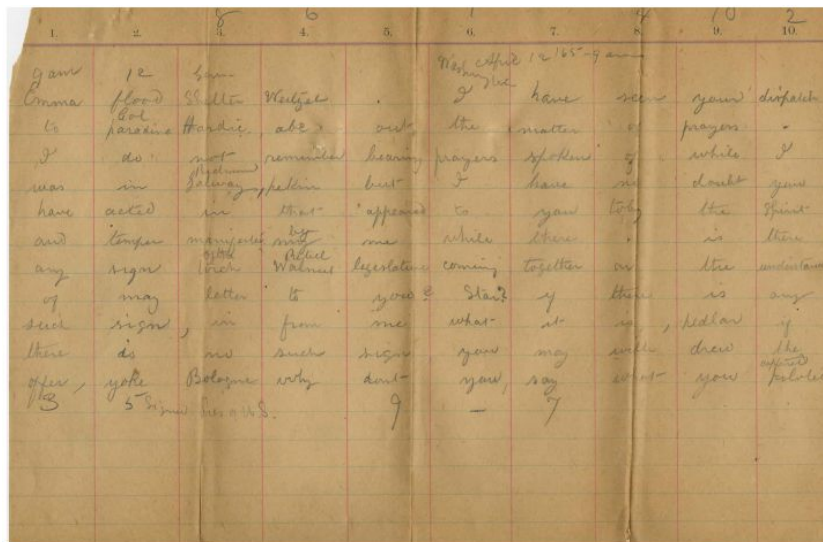 8 6 1 4 10 2
1. 2. 3. 4. 5. 6. 7. 8. 9. 10.
Washington April 12 '65 - 9 am
9 am 12
Emma flood Shelter Weitzel . I have seen your dispatch
to Col paradise Hardie, abe out the matter of prayers .
I do not remember hearing prayers spoken of while I
was in Richmond Galway, pekin but I have no doubt you
have acted in that appeared to you to by the Spirit
and temper manifested by me while there . is there
any sign torch Walnut legislature coming together on the
of may letter to you ? Star ? if there is any
such sign, in from me what it is, pedlar if
there is no such sign you may with draw the
offer, yoke Bologna why dont you, say what you
3 5 Signed 9 - 7